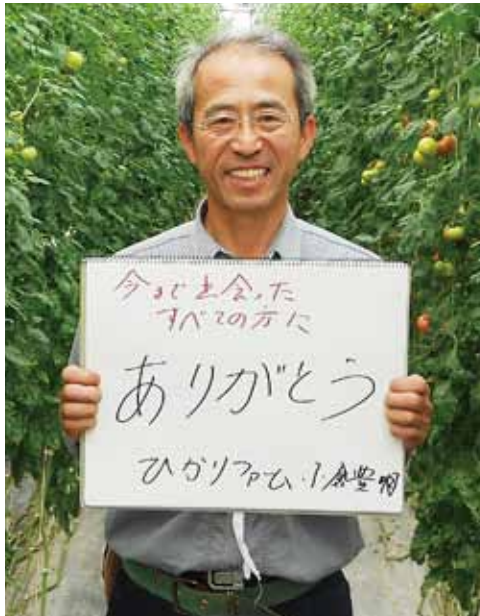 今まで出会った
すべての方に
ありがとう
ひかりファーム